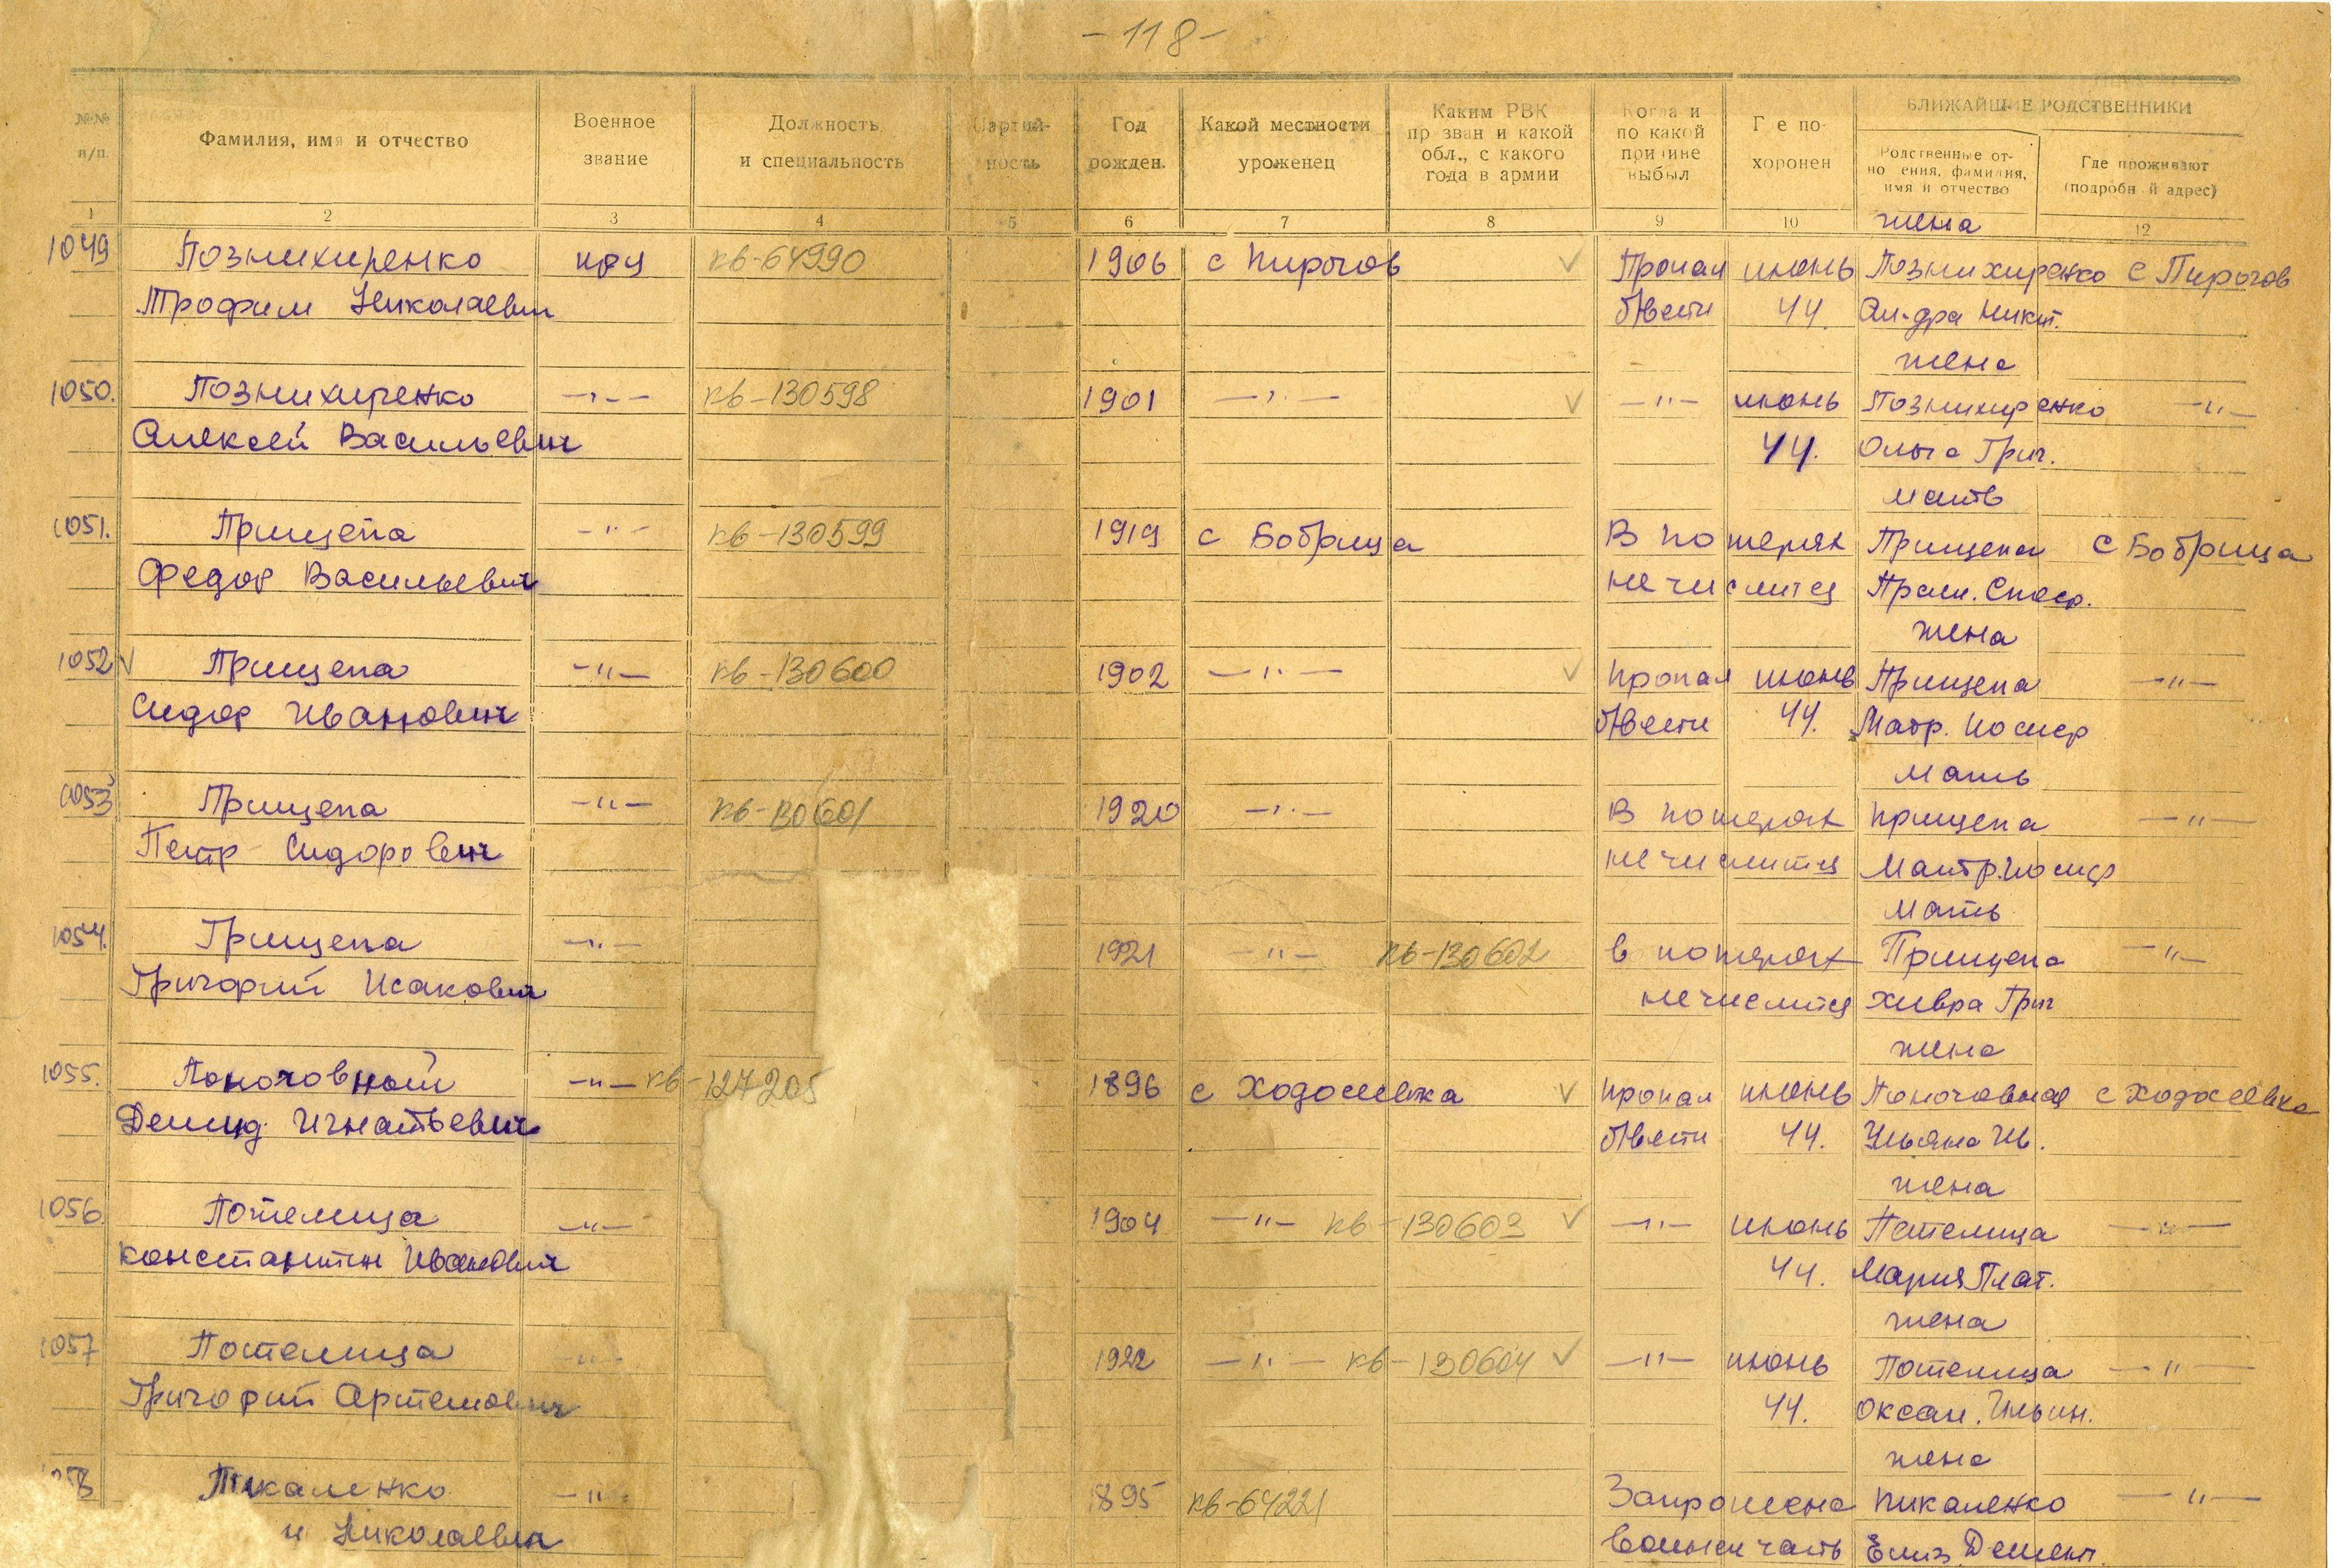 - 118 -
№№ п/п.
Фамилия, имя и отчество
Военное звание
Должность и специальность
Партийность
Год рожден.
Какой местности уроженец
Каким РВК призван и какой обл., с какого года в армии
Когда и по какой причине выбыл
Где похоронен
БЛИЖАЙШИЕ РОДСТВЕННИКИ
Родственные отношения, фамилия, имя и отчество
Где проживают (подробный адрес)
1 2 3 4 5 6 7 8 9 10 12
жена
1049 Познихиренко кр-ц кв-64990 1906 с Пирогов √ Пропал июнь Познихиренко с Пирогов
Трофим Николаевич б/вести 44. Ал-дра Никит.
жена
1050. Познихиренко —"— кв-130598 1901 —"— √ —"— июнь Познихиренко —"—
Алексей Васильевич 44. Ольга Григ.
мать
1051. Прищепа —"— кв-130599 1919 с Бобрица В потерях Прищепа с Бобрица
Федор Васильевич не числится
жена
1052 √ Прищепа —"— кв-130600 1902 —"— √ пропал июнь Прищепа —"—
Сидор Иванович б/вести 44. Матр. Иосиф
мать
1053 Прищепа —"— кв-130601 1920 —"— В потерях Прищепа —"—
Петр Сидорович не числится Матр. Иосиф
мать
1054. Прищепа —"— 1921 —"— кв-130602 в потерях Прищепа —"—
Григорий Исакович не числится Хивра Григ
жена
1055. Поночовный —"— кв-127205 1896 с Ходосеевка √ пропал июнь Поночовная с Ходосеевка
Демид Игнатьевич б/вести 44. Ульяна Ив.
жена
1056. Потемица —"— 1904 —"— кв-130603 √ —"— июнь Потемица —"—
Константин Иванович 44. Мария Плат.
жена
1057 Потемица —"— 1922 —"— кв-130604 √ —"— июнь Потемица —"—
Григорий Артемович 44. Оксан. Ильин.
жена
58 Пикаленко —"— 895 кв-64221 Запрошена Пикаленко —"—
и Николаевич часть Елиз. Демент.